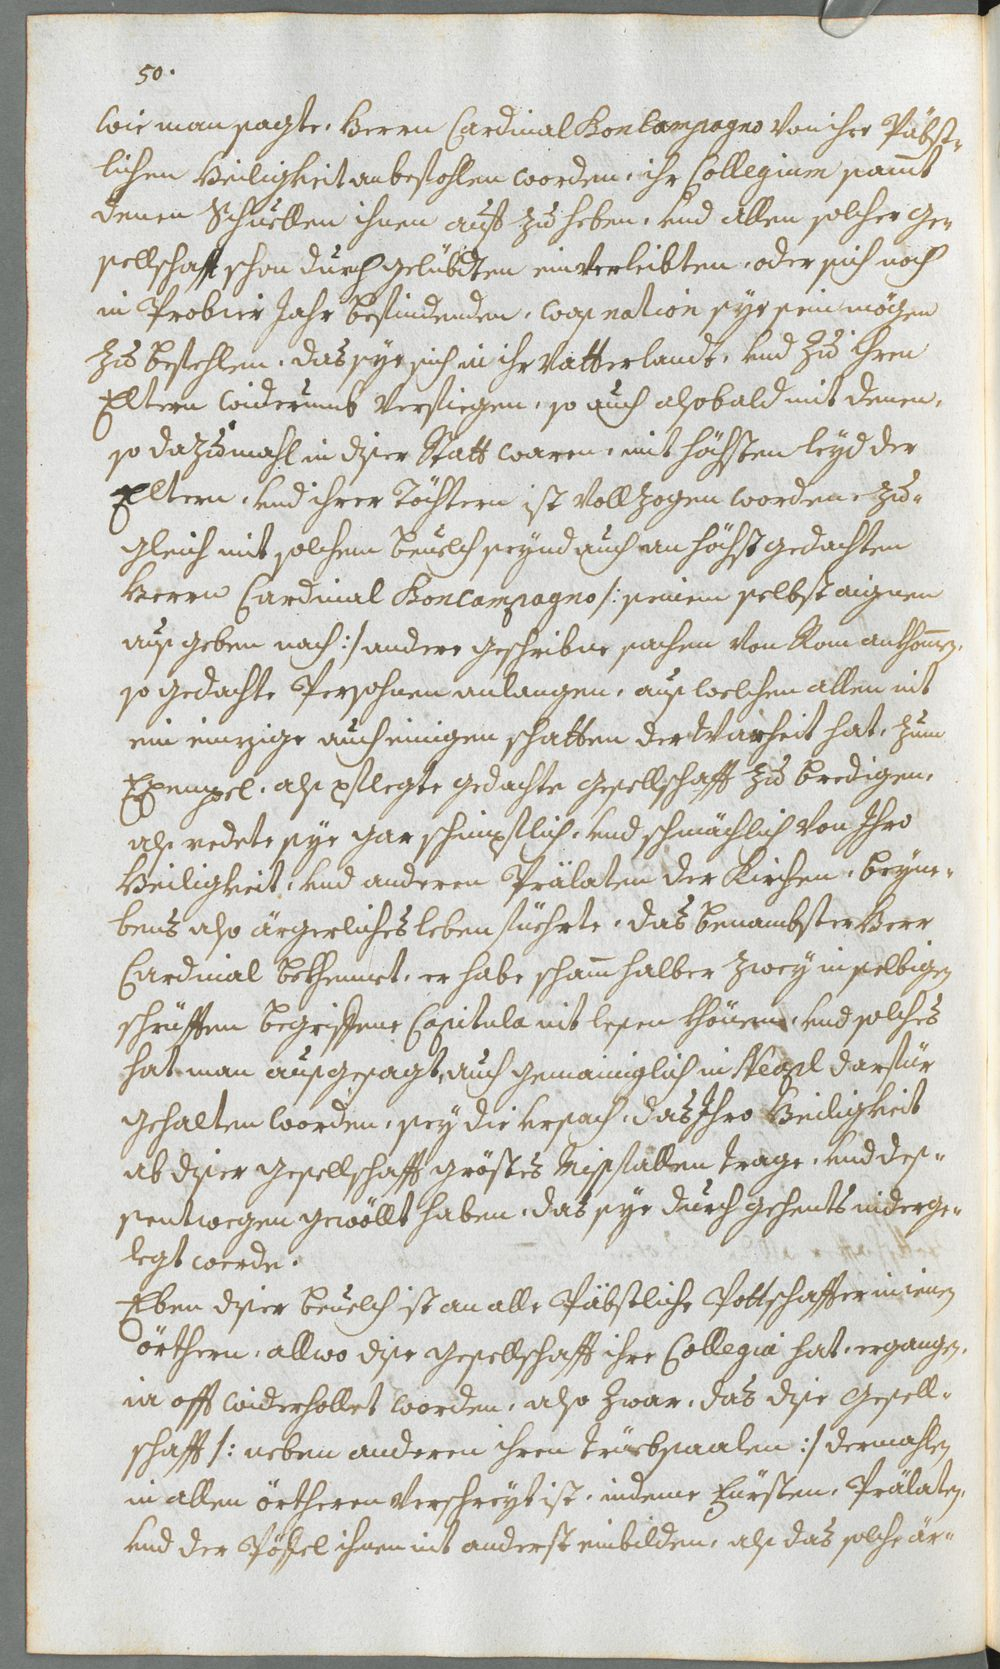 50.
wie man sagte, Herrn Cardinal Boncampagno von ihre Päbst-
lichen Heiligkeit anbefohlen worden, ihr Collegium sammt
denen Schuellen ihnen auf zu heben, und allen solcher ge-
sellschafft schon durch gelübdten einverleibten, oder sich noch
in Probier Jahr befindenden, was nation sye sein mögen
zu befehlen, das sye sich in ihr Vatterlandt, und zu ihren
Eltern widerumb verfiegen, so auch alsobald mit denen,
so dazumahl in diser Statt waren, mit höchsten leyd der
Eltern, und ihrer Töchtern ist vollzogen worden, zu-
gleich mit solchem beuelch seynd auch an höchst gedachten
Herrn Cardinal Boncampagno /: seinem selbst aignen
aus geben nach :/ andere geschribne sachen von Rom ankhommen,
so gedachte Persohnen anlangen, aus welchen allen nit
ein einzige auch einigen schatten der Warheit hat, zum
Exempel, als pflegte gedachte gesellschafft zu bredigen,
als redete sye gar schimpflich, und schmächlich von Ihro
Heiligkeit, und anderen Prälaten der Kirchen, beyne-
bens also ärgerliches leben füehrte, das benambster Herr
Cardinal bekhennet, er habe scham halber zwey in selbigen
schrüfften begriffene Capitula nit lesen khönen, und solches
hat man ausgesagt, auch gemainiglich in Neapl darfür
gehalten worden, sey die ursach, das Ihro Heiligkeit
ab diser gesellschafft gröstes Misfallen trage, und des-
sentwegen gewöllt haben, das sye durch gehents niderge-
legt werde.
Eben diser beuelch ist an alle Päbstliche Pottschaffter in ienen
örthern, allwo dise gesellschafft ihre Collegia hat, ergangen,
ia offt widerhollet worden, also zwar, das dise gesell-
schafft /: neben anderen ihren trüebsaalen :/ dermahlen
in allen örtheren verschreyt ist, indeme Fürsten, Prälaten,
und der Pöfel ihnen nit anderst einbilden, als das solche är-